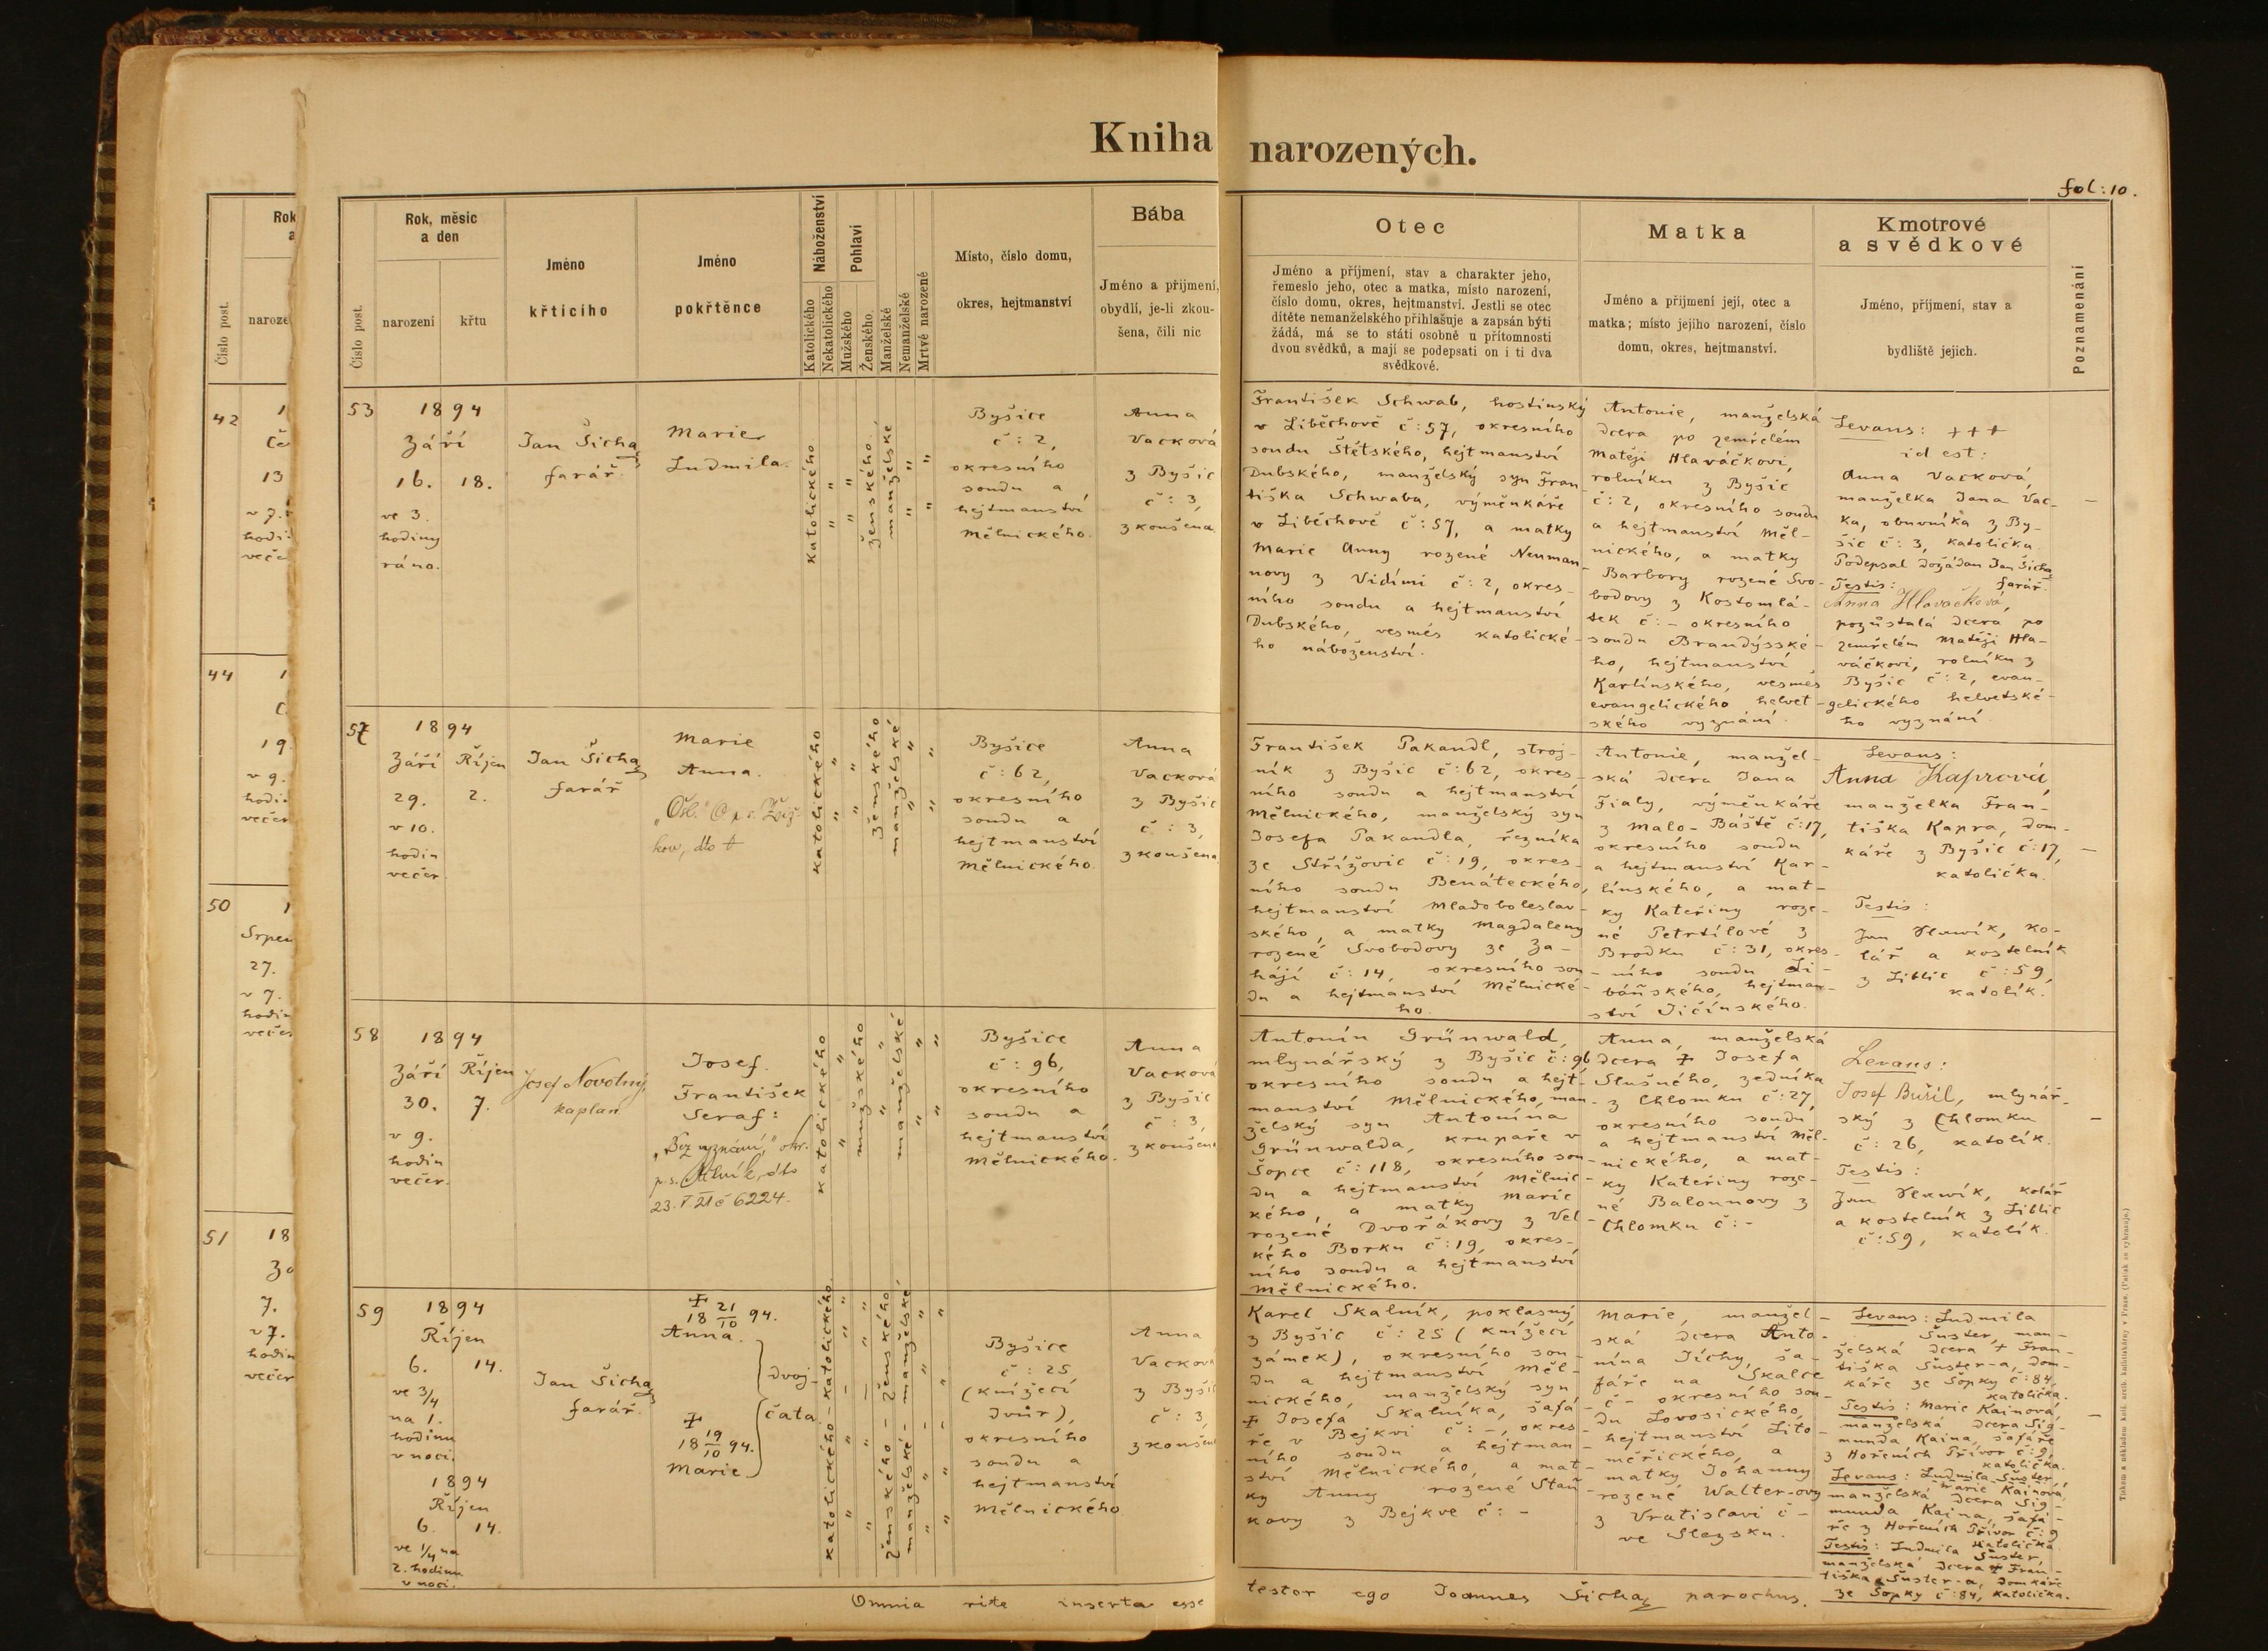 Kniha narozených.
fol: 10.
Rok
Číslo post.
naroze
42
13
hodi
veče
44
19.
v 9.
hodin
večer
50
Srpen
27.
v 7.
hodin
večer
51
18
7.
v 7.
hodin
večer
Číslo post.
Rok, měsíc
a den
narození
křtu
Jméno
křtícího
Jméno
pokřtěnce
Náboženství
Katolického
Nekatolického
Pohlaví
Mužského
Ženského.
Manželské
Nemanželské
Mrtvě narozené
Místo, číslo domu,
okres, hejtmanství
Bába
Jméno a přijmení,
obydlí, je-li zkou-
šena, čili nic
Otec
Jméno a příjmení, stav a charakter jeho,
řemeslo jeho, otec a matka, místo narození,
číslo domu, okres, hejtmanství. Jestli se otec
dítěte nemanželského přihlašuje a zapsán býti
žádá, má se to státi osobně u přítomnosti
dvou svědků, a mají se podepsati on i ti dva
svědkové.
Matka
Jméno a přijmení její, otec a
matka; místo jejího narození, číslo
domu, okres, hejtmanství.
Kmotrové
a svědkové
Jméno, příjmení, stav a
bydliště jejich.
Poznamenání
53
1894
Září
16. 18.
ve 3.
hodiny
ráno.
Jan Šicha
farář.
Marie
Ludmila.
katolického
" "
" "
ženského.
manželské
" "
" "
Byšice
č: 2,
okresního
soudu a
hejtmanství
Mělnického.
Anna
Vacková
z Byšic
č: 3,
zkoušena
František Schwab, hostinský
v Liběchově č: 57, okresního
soudu Štětského, hejtmanství
Dubského, manželský syn Fran-
tiška Schwaba, výměnkáře
v Liběchově č: 57, a matky
Marie Anny rozené Neuman-
novy z Vidími č: 2, okres-
ního soudu a hejtmanství
Dubského, vesměs katolické-
ho náboženství.
Antonie, manželská
dcera po zemřelém
Matěji Hlaváčkovi,
rolníku z Byšic
č: 2, okresního soudu
a hejtmanství Měl-
nického, a matky
Barbory rozené Svo-
bodovy z Kostomlá-
tek č: - okresního
soudu Brandýsské-
ho, hejtmanství
Karlínského, vesměs
evangelického helvet-
ského vyznání.
Levans: +++
id est:
Anna Vacková,
manželka Jana Vac-
ka, obuvníka z By-
šic č: 3, katolička.
Podepsal dožádán Jan Šicha
farář.
Testis:
Anna Hlavačková,
pozůstalá dcera po
zemřelém Matěji Hla-
váčkovi, rolníku z
Byšic č: 2, evan-
gelického helvetské-
ho vyznání.
–
57
1894
Září Říjen
29. 2.
v 10.
hodin
večer.
Jan Šicha
farář
Marie
Anna.
katolického
" "
" "
ženského
manželské
" "
" "
Byšice
č: 62,
okresního
soudu a
hejtmanství
Mělnického.
Anna
Vacková
z Byšic
č: 3,
zkoušena
František Pakandl, stroj-
ník z Byšic č: 62, okres-
ního soudu a hejtmanství
Mělnického, manželský syn
Josefa Pakandla, řezníka
ze Střížovic č: 19, okres-
ního soudu Benáteckého,
hejtmanství Mladoboleslav-
ského, a matky Magdaleny
rozené Svobodovy ze Zá-
hájí č: 14, okresního sou-
du a hejtmanství Mělnické-
ho.
Antonie, manžel-
ská dcera Jana
Fialy, výměnkáře
z Malo-Báště č: 17,
okresního soudu
a hejtmanství Kar-
línského, a mat-
ky Kateřiny roze-
né Petrtílové z
Brodku č: 31, okres-
ního soudu Li-
báňského, hejtman-
ství Jičínského.
Levans:
Anna Kaprová,
manželka Fran-
tiška Kapra, dom-
káře z Byšic č: 17,
katolička.
Testis:
Jan Slawík, ko-
lář a kostelník
z Liblic č: 59,
katolík.
–
58
1894
Září Říjen
30. 7.
v 9.
hodin
večer.
Josef Novotný
kaplan
Josef
František
Seraf:
„Bez vyznání," okr.
p.s. Mělník, dto
23.V.21 č 6224.
katolického
" "
mužského
" "
manželské
" "
" "
Byšice
č: 96,
okresního
soudu a
hejtmanství
Mělnického.
Anna
Vacková
z Byšic
č: 3,
zkoušena
Antonín Grünwald,
mlynářský z Byšic č: 96
okresního soudu a hejt-
manství Mělnického, man-
želský syn Antonína
Grünwalda, krupaře v
Šopce č: 118, okresního sou-
du a hejtmanství Mělnic-
kého, a matky Marie
rozené Dvořákovy z Vel-
kého Borku č: 19, okres-
ního soudu a hejtmanství
Mělnického.
Anna, manželská
dcera + Josefa
Slušného, zedníka
z Chlomku č: 27,
okresního soudu
a hejtmanství Měl-
nického, a mat-
ky Kateřiny roze-
né Balounovy z
Chlomku č: -
Levans:
Josef Buřil, mlynář-
ský z Chlomku
č: 26, katolík.
Testis:
Jan Slawík, kolář
a kostelník z Liblic
č: 59, katolík.
–
59
1894
Říjen
6. 14.
ve 3/4
na 1.
hodinu
v noci.
1894
Říjen
6. 14.
ve 1/4 na
2. hodinu
v noci.
Jan Šicha
farář.
+ 21
18 10 94.
Anna.
dvoj-
čata
+ 19
18 10 94.
Marie
katolického – katolického.
ženského – ženského
manželské – manželské
Byšice
č: 25
(knížecí
dvůr),
okresního
soudu a
hejtmanství
Mělnického
Anna
Vacková
z Byšic
č: 3,
zkoušena
Karel Skalník, poklasný
z Byšic č: 25 (knížecí
zámek), okresního sou-
du a hejtmanství Měl-
nického, manželský syn
+ Josefa Skalníka, šafá-
ře v Bejkvi č: -, okres-
ního soudu a hejtman-
ství Mělnického, a mat-
ky Anny rozené Staň-
kovy z Bejkve č: -
Marie, manžel-
ská dcera Anto-
nína Jíchy, ša-
fáře na Skalce
č - okresního sou-
du Lovosického,
hejtmanství Lito-
měřického, a
matky Johanny
rozené Walter-ovy
z Vratislavi č -
ve Slezsku.
Levans: Ludmila
Šuster, man-
želská dcera + Fran-
tiška Šuster-a, dom-
káře ze Šopky č: 84,
katolička.
Testis: Marie Kainová,
manželská dcera Sig-
munda Kaina, šafáře
z Hořeních Přívor č: 9,
katolička.
Levans: Ludmila Šuster,
Marie Kainová,
manželská dcera Sig-
munda Kaina, šafá-
ře z Hořeních Přívor č: 9
katolička
Testis: Ludmila Šuster,
manželská dcera + Fran-
tiška Šuster-a, domkáře
ze Šopky č: 84, katolička.
–
Omnia rite inserta esse testor ego Joannes Šicha, parochus.